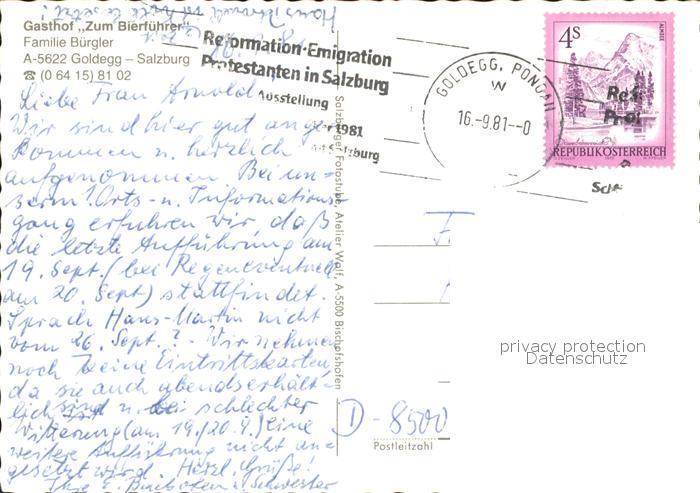 Gasthof „Zum Bierführer"
Familie Bürgler
A-5622 Goldegg – Salzburg
☎ (0 64 15) 81 02
Reformation·Emigration
Protestanten in Salzburg
Ausstellung
1981
Salzburg
GOLDEGG, PONGAU
W
16.-9.81--0
4 S
ALMSEE
REPUBLIK ÖSTERREICH
Liebe Frau Arnold!
Wir sind hier gut ange-
kommen u. herzlich
aufgenommen. Bei un-
serm 1. Orts- u. Informations-
gang erfuhren wir, daß
die letzte Aufführung am
19. Sept. (bei Regen eventuell
am 20. Sept) stattfindet.
Sprach Hans-Martin nicht
vom 26. Sept.? - Wir nehmen
noch keine Eintrittskarten,
da sie auch abends erhält-
lich sind u. bei schlechter
Witterung (am 19./20.9.) eine
weitere Aufführung nicht an-
gesetzt wird. Herzl. Grüße!
Ihre E. u. Schwester
Salzburger Fotostube, Atelier Wolf, A-5500 Bischofshofen
D-8500
Postleitzahl
privacy protection
Datenschutz